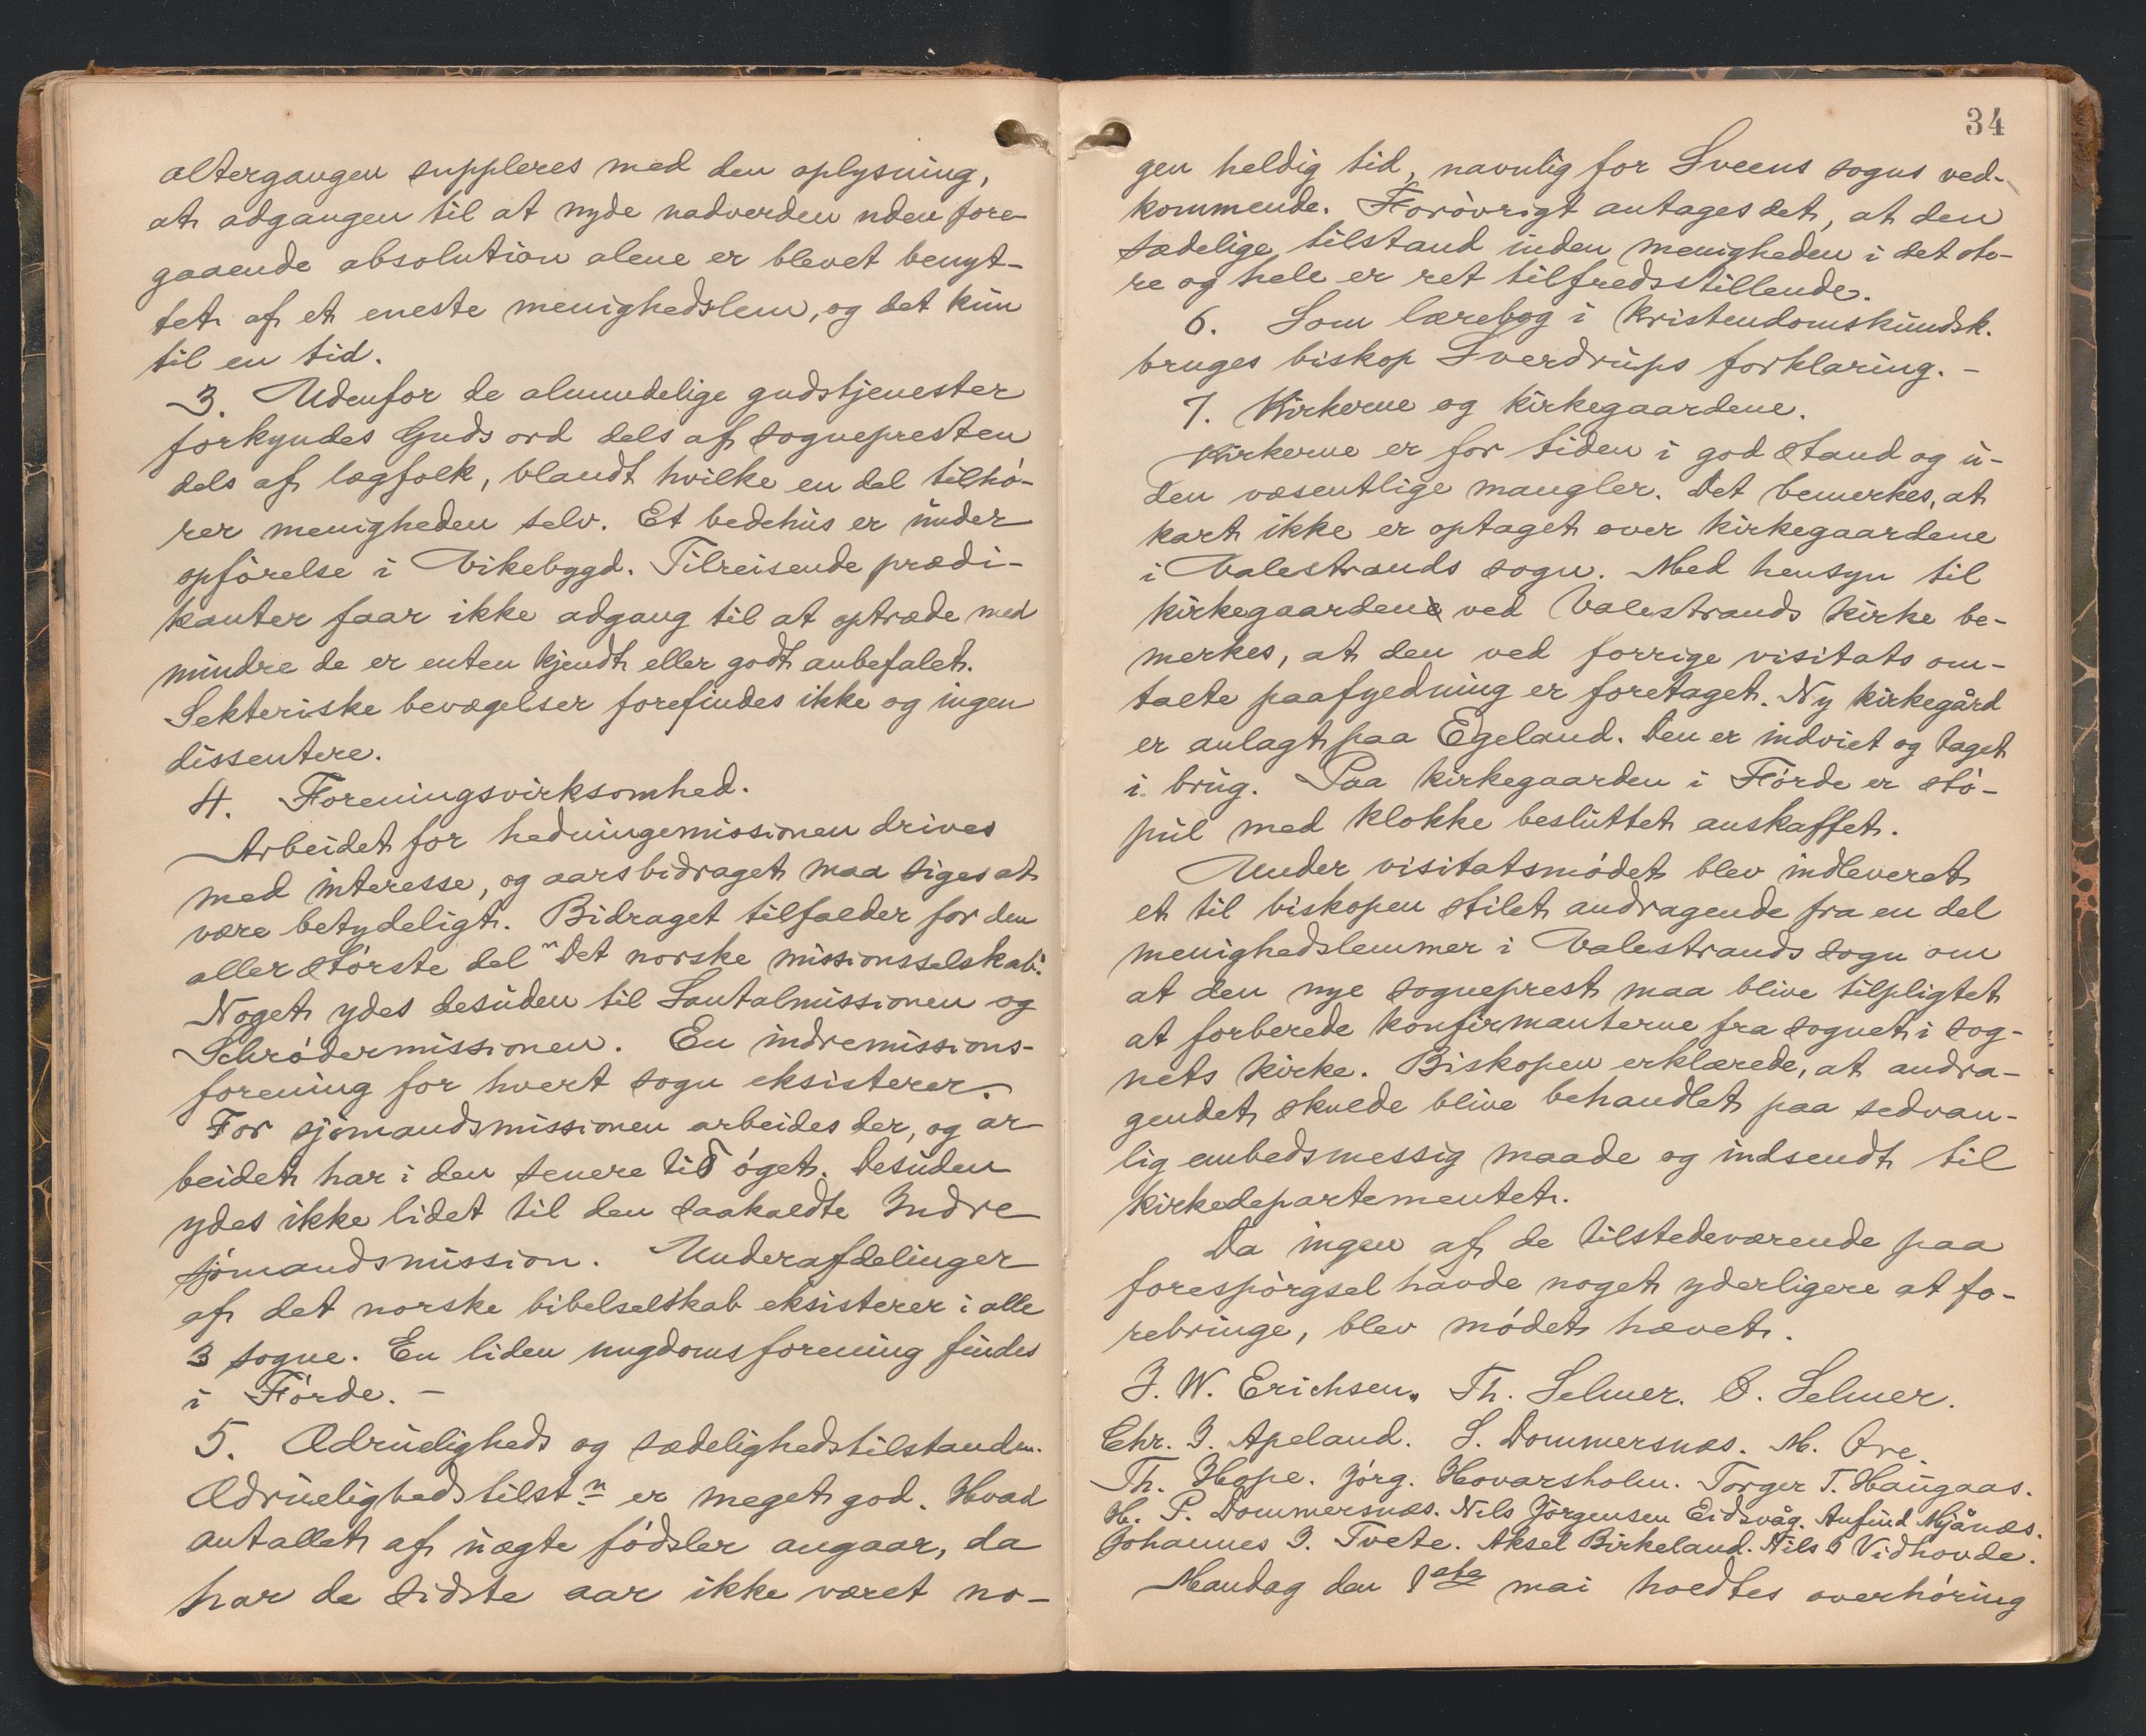 altergangen suppleres med den oplysning,
at adgangen til at nyde nadverden uden fore-
gaaende absolution alene er blevet benyt-
tet af et eneste menighedslem, og det kun
til en tid.
3. Udenfor de almindelige gudstjenester
forkyndes Guds ord dels af sognepresten
dels af lægfolk, blandt hvilke en del tilhö-
rer menigheden selv. Et bedehus er under
opförelse i Vikebygd. Tilreisende prædi-
kanter faar ikke adgang til at optræde med
mindre de er enten kjendt eller godt anbefalet.
Sekteriske bevægelser forefindes ikke og ingen
dissentere.
4. Foreningsvirksomhed.
Arbeidet for hedningemissionen drives
med interesse, og aarsbidraget maa siges at
være betydeligt. Bidraget tilfalder for den
allerstörste del "Det norske missionsselskab".
Noget ydes desuden til Santalmissionen og
Schrödermissionen. En indremissions-
forening for hvert sogn eksisterer.
For sjömandsmissionen arbeides der, og ar-
beidet har i den senere tid öget. Desuden
ydes ikke lidet til den saakaldte Indre
sjömandsmission. Underafdelinger
af det norske bibelselskab eksisterer i alle
3 sogne. En liden ungdomsforening findes
i Förde. -
5. Ædrueligheds og sædelighedstilstanden.
Ædruelighedstilstn er meget god. Hvad
antallet af uægte födsler angaar, da
har de sidste aar ikke været no-
34
gen heldig tid, navnlig for Sveens sogns ved-
kommende. Forövrigt antages det, at den
sædelige tilstand inden menigheden i det sto-
re og hele er ret tilfredsstillende.
6. Som lærebog i kristendomskundsk.
bruges biskop Sverdrups forklaring. -
7. Kirkerne og kirkegaardene.
Kirkerne er for tiden i god stand og u-
den væsentlige mangler. Det bemerkes, at
kart ikke er optaget over kirkegaardene
i Valestrands sogn. Med hensyn til
kirkegaarden ved Valestrands kirke be-
merkes, at den ved forrige visitats om-
talte paafyldning er foretaget. Ny kirkegård
er anlagt paa Egeland. Den er indviet og taget
i brug. Paa kirkegaarden i Förde er stö-
pul med klokke besluttet anskaffet.
Under visitatsmödet blev indleveret
et til biskopen stilet andragende fra en del
menighedslemmer i Valestrands sogn om
at den nye sogneprest maa blive tilpligtet
at forberede konfirmanterne fra sognet i sog-
nets kirke. Biskopen erklærede, at andra-
gendet skulde blive behandlet paa sedvan-
lig embedsmessig maade og indsendt til
kirkedepartementet.
Da ingen af de tilstedeværende paa
forespörgsel havde noget yderligere at fo-
rebringe, blev mödet hævet.
J. W. Erichsen. Th. Selmer. O. Selmer.
Chr. J. Apeland. S. Dommersnæs. M. Öre.
Th. Hope. Jörg. Hovarsholm. Torger T. Haugaas.
H. P. Dommersnæs. Nils Jörgensen Eidsvåg. Anfind Mjånæs.
Johannes J. Tvete. Aksel Birkeland. Nils Vidhovde.
Mandag den 1ste mai holdtes overhöring